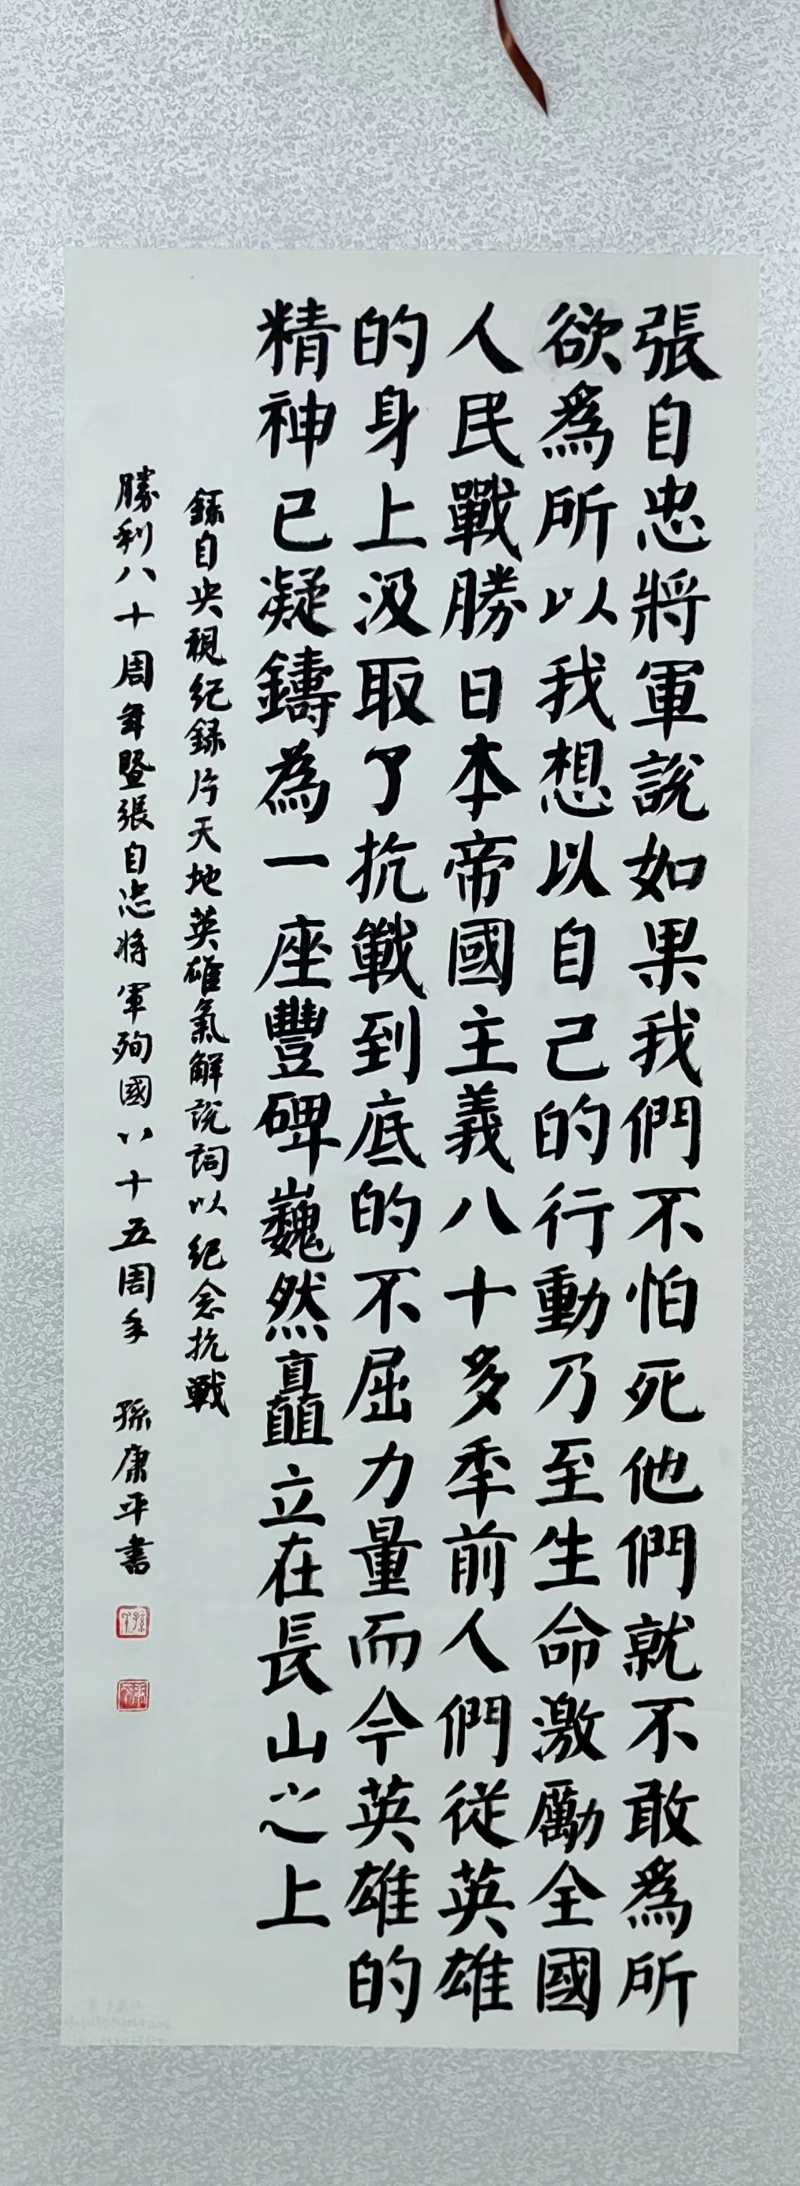 張自忠將軍說如果我們不怕死他們就不敢爲所
欲爲所以我想以自己的行動乃至生命激勵全國
人民戰勝日本帝國主義八十多年前人們從英雄
的身上汲取了抗戰到底的不屈力量而今英雄的
精神已凝鑄為一座豐碑巍然矗立在長山之上
錄自央視紀錄片天地英雄氣解說詞以紀念抗戰
勝利八十周年暨張自忠將軍殉國八十五周年 孫康平書